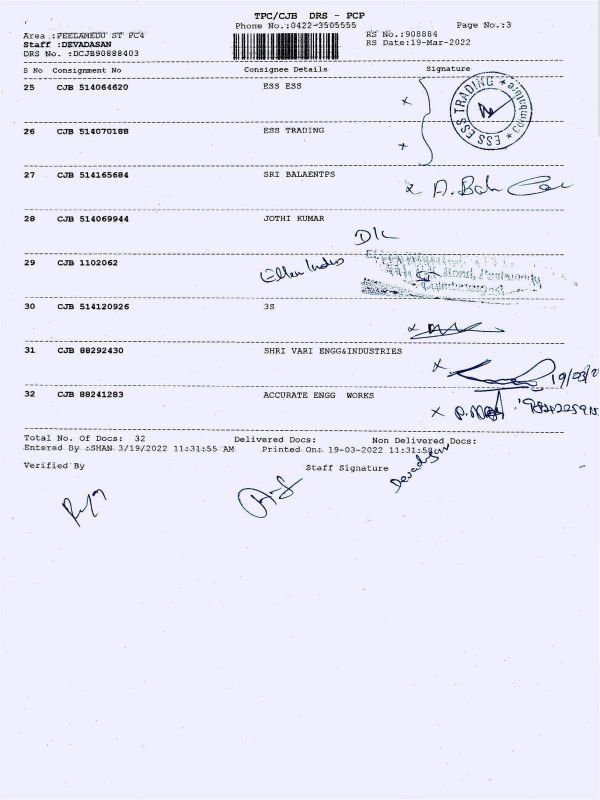 TPC/CJB DRS - PCP
Phone No.:0422-3505555 Page No.:3
Area :PEELAMEDU ST PC4 RS No.:908884
Staff :DEVADASAN RS Date:19-Mar-2022
DRS No. :DCJB90888403
S No Consignment No Consignee Details Signature
25 CJB 514064620 ESS ESS
ESS TRADING * Coimbatore *
26 CJB 514070188 ESS TRADING
27 CJB 514165684 SRI BALAENTPS
28 CJB 514069944 JOTHI KUMAR
29 CJB 1102062
30 CJB 514120926 3S
31 CJB 88292430 SHRI VARI ENGG&INDUSTRIES
32 CJB 88241283 ACCURATE ENGG WORKS
Total No. Of Docs: 32 Delivered Docs: Non Delivered Docs:
Entered By :SHAN 3/19/2022 11:31:55 AM Printed On: 19-03-2022 11:31:58
Verified By Staff Signature